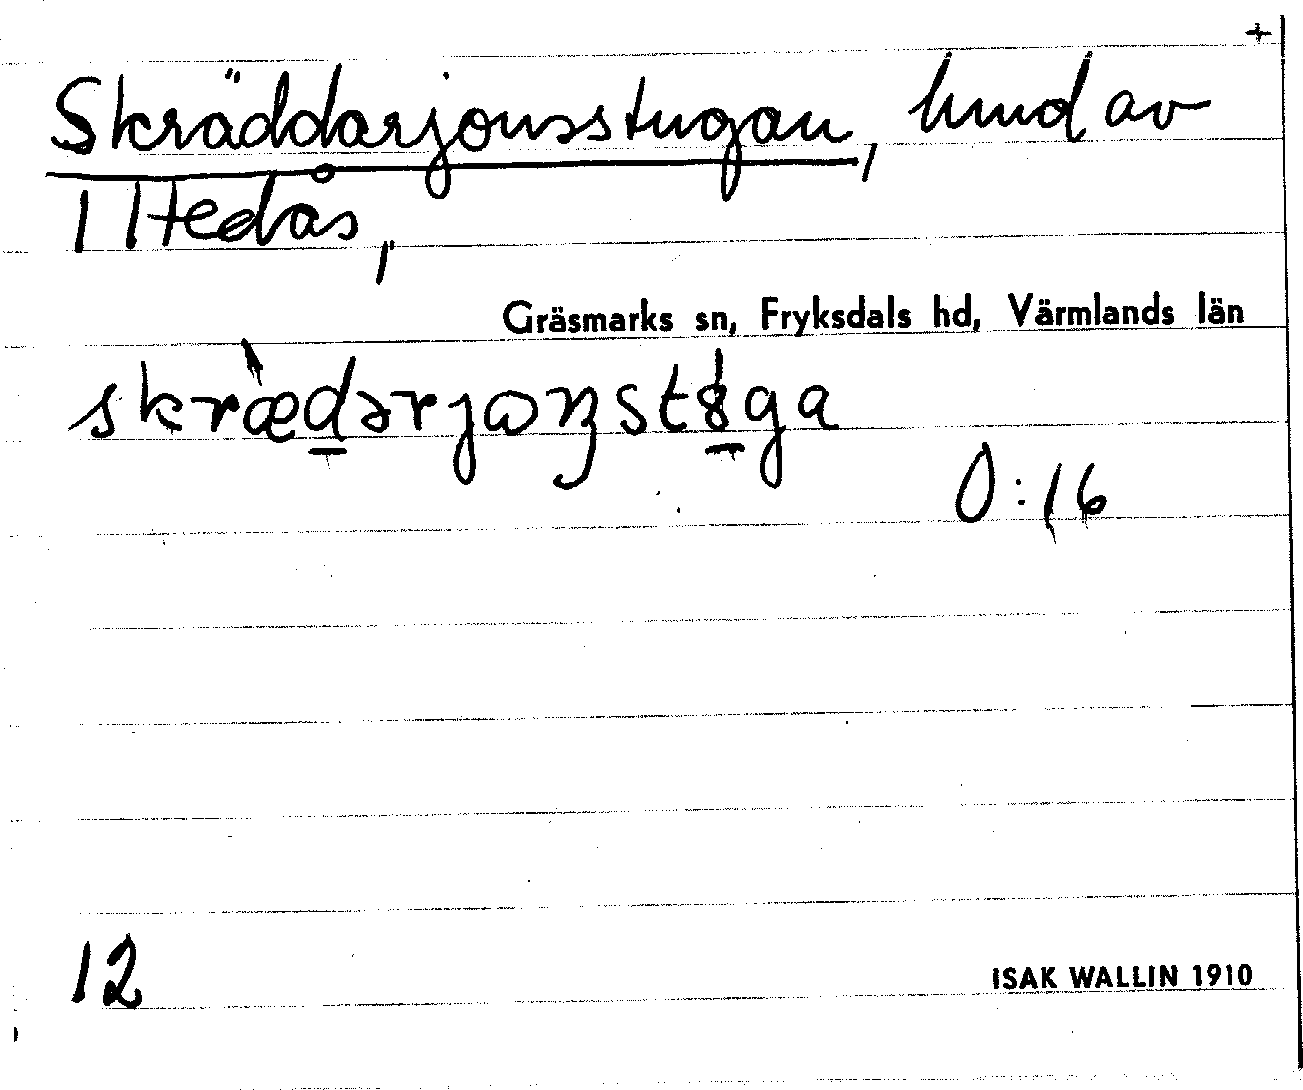 +
Skräddarjonsstugan, hmd av
1 Hedås,
Gräsmarks sn, Fryksdals hd, Värmlands län
0:16
12
ISAK WALLIN 1910